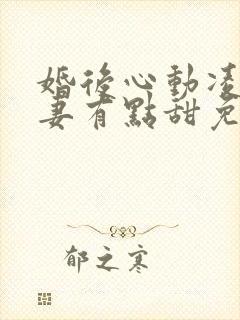 婚後心動凌
妻有點甜免
郁之寒